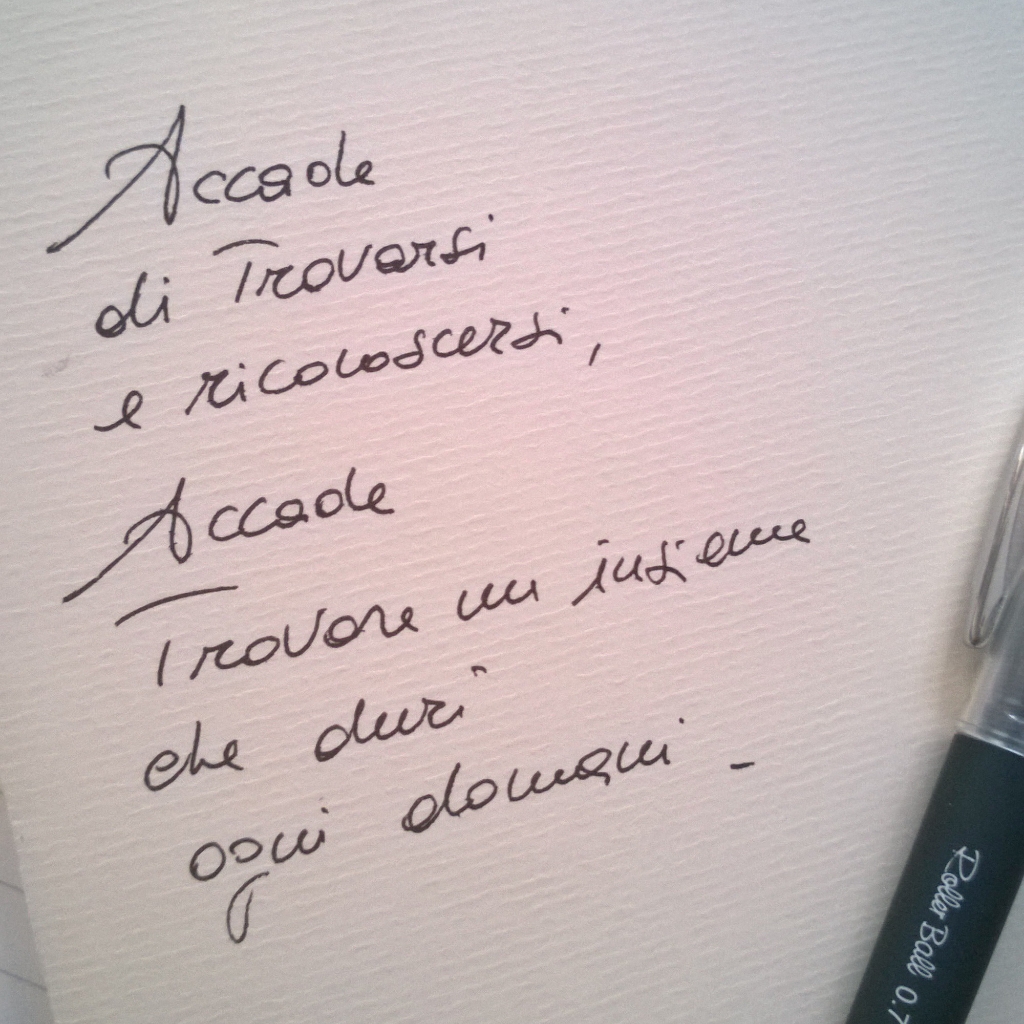 Accade
di Trovarsi
e riconoscersi,
Accade
Trovare un insieme
che duri
ogni domani -
Roller Ball 0.7